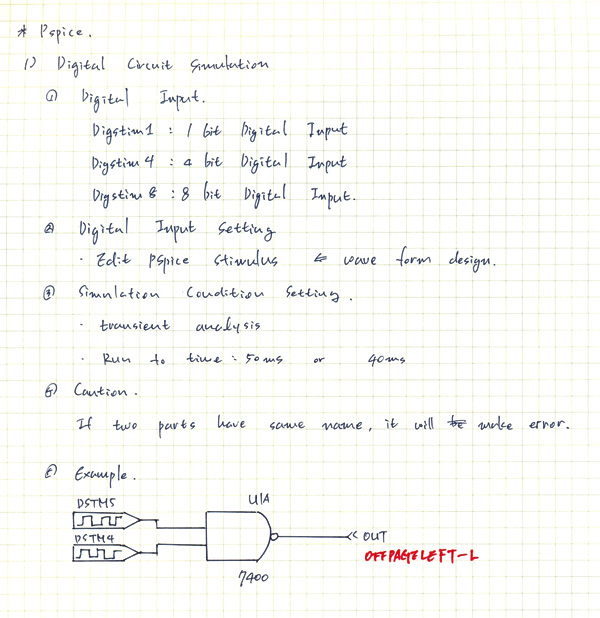 * Pspice.
1) Digital Circuit Simulation
① Digital Input.
Digstim1 : 1 bit Digital Input
Digstim 4 : 4 bit Digital Input
Digstim 8 : 8 bit Digital Input.
② Digital Input Setting
· Edit Pspice Stimulus ⇐ wave form design.
③ Simulation Condition Setting.
· transient analysis
· Run to time : 50ms or 40ms
④ Caution.
If two parts have same name, it will make error.
⑤ Example.
DSTM5
U1A
DSTM4
OUT
OFFPAGELEFT-L
7400